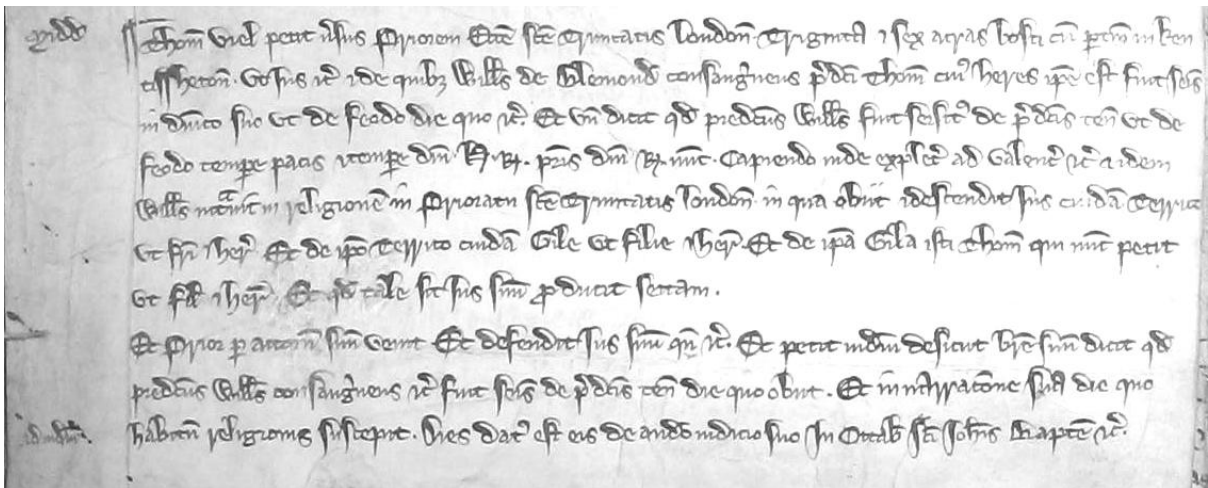 Midd Thom̃ Viel petit v̉sus Priorem Ecc̃e Sc̃e Trinitatis London̄ Triginta ⁊ sex acras bosci cũ p̱tiñ in Ken
tissheton̄. Vt Jus ⁊c̉ ⁊ de quibȝ Will̃s de Blemond̃ consangẻneus p̉dc̃i Thom̃ cuiꝰ heres ip̃e est fuit seis̉
in dñico suo vt de feodo die quo ⁊c̉. Et vñ dicit qđ predc̃us Will̃s fuit seisitꝰ de p̉dc̃is teñ vt de
feodo temp̱e pacis ⁊ temp̱e dñi. H̃. R̃. pr̃is dñi R̃. nũc. Capiendo inde explec̃ ad valenc̉ ⁊c̉ ⁊ idem
Will̃s intravit in religionẽ in Prioratu sc̃e Trinitatis London̄ in qua obiit ⁊ descendit Jus cuidã Terrico
vt fr̃i ⁊ hered̉. Et de ip̃o Terrico cuidã Gile vt filie ⁊ hered̉. Et de ip̃a Gila isti Thom̃ qui nũc petit
vt fil̃ ⁊ hered̉. Et qđ tale sit Jus suũ ꝓducit sectam.
Et Prior p̱ attorñ suũ venit Et defendit Jus suũ qñ ⁊c̉. Et petit iudm̃ desicut br̃e suũ dicit qđ
predc̃us Will̃s consangẻneus ⁊c̉ fuit seis̉ de p̉dc̃is teñ die quo obiit. Et in narrac̃one sua die quo
habitũ religionis suscepit. Dies datꝰ est eis de audiendo iudicio suo In Octab̃ Sc̃i Joh̃is Bapt̃e ⁊c̉.